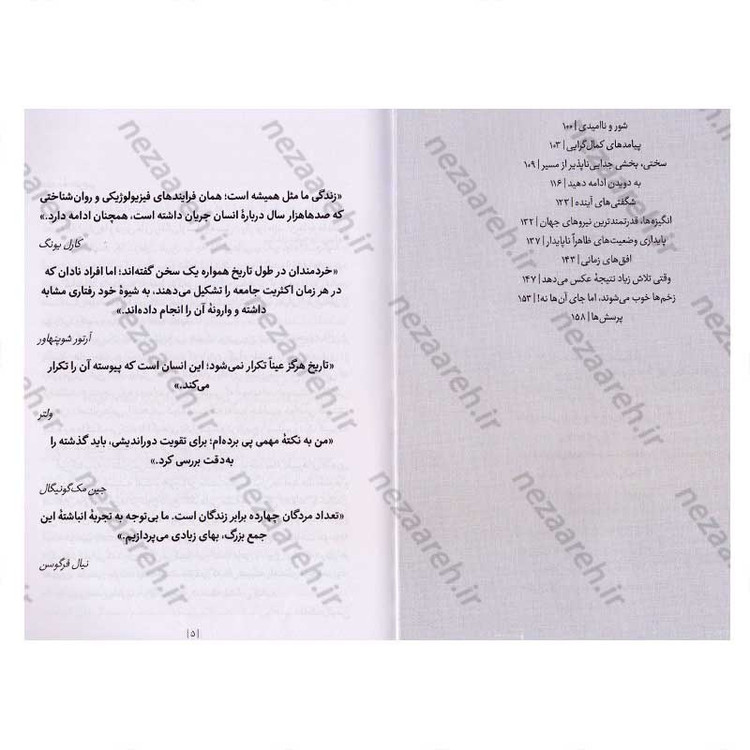 شور و ناامیدی | ۱۰۰
پیامدهای کمال‌گرایی | ۱۰۳
سختی، بخشی جدایی‌ناپذیر از مسیر | ۱۰۹
به دویدن ادامه دهید | ۱۱۶
شگفتی‌های آینده | ۱۲۳
انگیزه‌ها، قدرتمندترین نیروهای جهان | ۱۳۲
پایداری وضعیت‌های ظاهراً ناپایدار | ۱۳۷
افق‌های زمانی | ۱۴۳
وقتی تلاش زیاد نتیجهٔ عکس می‌دهد | ۱۴۷
زخم‌ها خوب می‌شوند، اما جای آن‌ها نه! | ۱۵۳
پرسش‌ها | ۱۵۸
«زندگی ما مثل همیشه است؛ همان فرایندهای فیزیولوژیکی و روان‌شناختی
که صدهاهزار سال دربارهٔ انسان جریان داشته است، همچنان ادامه دارد.»
کارل یونگ
«خردمندان در طول تاریخ همواره یک سخن گفته‌اند؛ اما افراد نادان که
در هر زمان اکثریت جامعه را تشکیل می‌دهند، به شیوهٔ خود رفتاری مشابه
داشته و وارونهٔ آن را انجام داده‌اند.»
آرتور شوپنهاور
«تاریخ هرگز عیناً تکرار نمی‌شود؛ این انسان است که پیوسته آن را تکرار
می‌کند.»
ولتر
«من به نکتهٔ مهمی پی برده‌ام؛ برای تقویت دوراندیشی، باید گذشته را
به‌دقت بررسی کرد.»
جین مک‌گونیگال
«تعداد مردگان چهارده برابر زندگان است. ما بی‌توجه به تجربهٔ انباشتهٔ این
جمع بزرگ، بهای زیادی می‌پردازیم.»
نیال فرگوسن
| ۵ |
nezaareh.ir
nezaareh.ir
nezaareh.ir
nezaareh.ir
nezaareh.ir
nezaareh.ir
nezaareh.ir